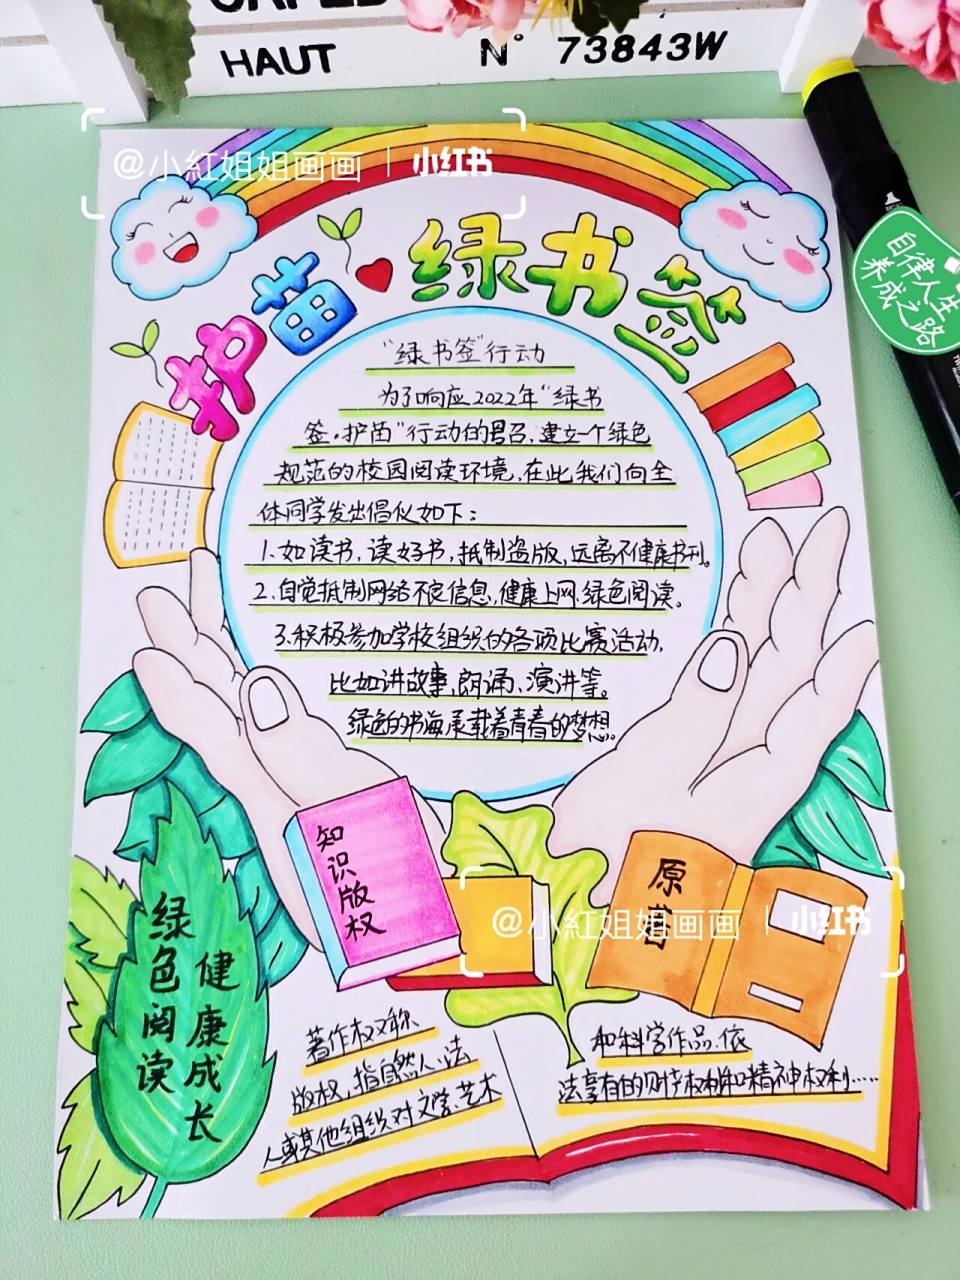 HAUT N° 73843W
@小紅姐姐画画 | 小红书
护苗 绿书签
自律人生
养成之路
"绿书签"行动
为了响应2022年"绿书
签·护苗"行动的号召,建立一个绿色
规范的校园阅读环境,在此我们向全
体同学发出倡仪如下:
1.如读书,读好书,抵制盗版,远离不健康书刊。
2.自觉抵制网络不良信息,健康上网.绿色阅读。
3.积极参加学校组织的各项比赛活动,
比如讲故事,朗诵、演讲等。
绿色的书海承载着青春的梦想。
知识版权
原著
@小紅姐姐画画 | 小红书
绿色阅读
健康成长
著作权又称
版权,指自然人、法
人或其他组织对文学、艺术
和科学作品.依
法享有的财产权利和精神权利……